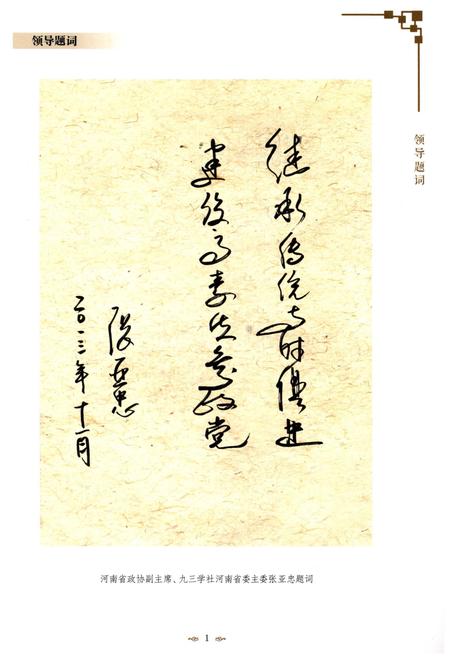 领导题词
领导题词
继承传统与时俱进
建设高素质参政党
张亚忠
二〇一三年十一月
河南省政协副主席、九三学社河南省委主委张亚忠题词
1